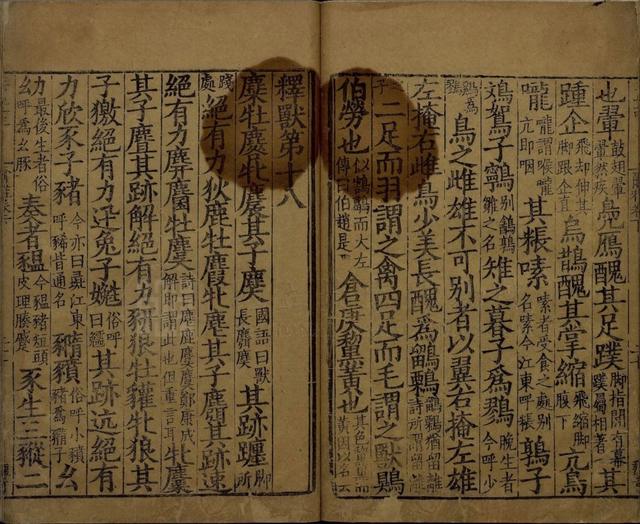 也翬鼓翅翬翬然疾鳧鴈醜其足蹼脚指間有幕蹼屬相著其
踵企飛却伸其脚跟企直烏鵲醜其掌縮飛縮脚腹下亢鳥
嚨嚨謂喉嚨亢即咽其粻嗉嗉者受食之處別名嗉今江東呼粻鶉子
鳼鴽子鸋別鵪鶉雛之名雉之暮子爲鷚晚生者今呼少
雞爲鷚鳥之雌雄不可別者以翼右掩左雄
左掩右雌鳥少美長醜爲鶹鷅鶹鷅猶留離詩所謂留離
之子二足而羽謂之禽四足而毛謂之獸鵙
伯勞也似鶷鶡而大左傳曰伯趙是倉庚黧黃也其色黧黑而黃因以名云
釋獸第十八
麋牡麔牝麎其子䴠國語曰獸長麛䴠其跡躔脚所
踐處絕有力狄鹿牡麚牝麀其子麛其跡速
絕有力麉麕牡麌詩曰麀鹿麌麌鄭康成解即謂此也但重言耳牝麜
其子麆其跡解絕有力豜狼牡貛牝狼其
子獥絕有力迅兔子嬎俗呼曰其跡迒絕有
力欣豕子豬今亦曰彘江東呼豨皆通名䝐豶俗呼小豶豬爲䝐子幺
幼最後生者俗呼爲幺豚奏者豱今豱豬短頭皮理腠蹙豕生三豵二